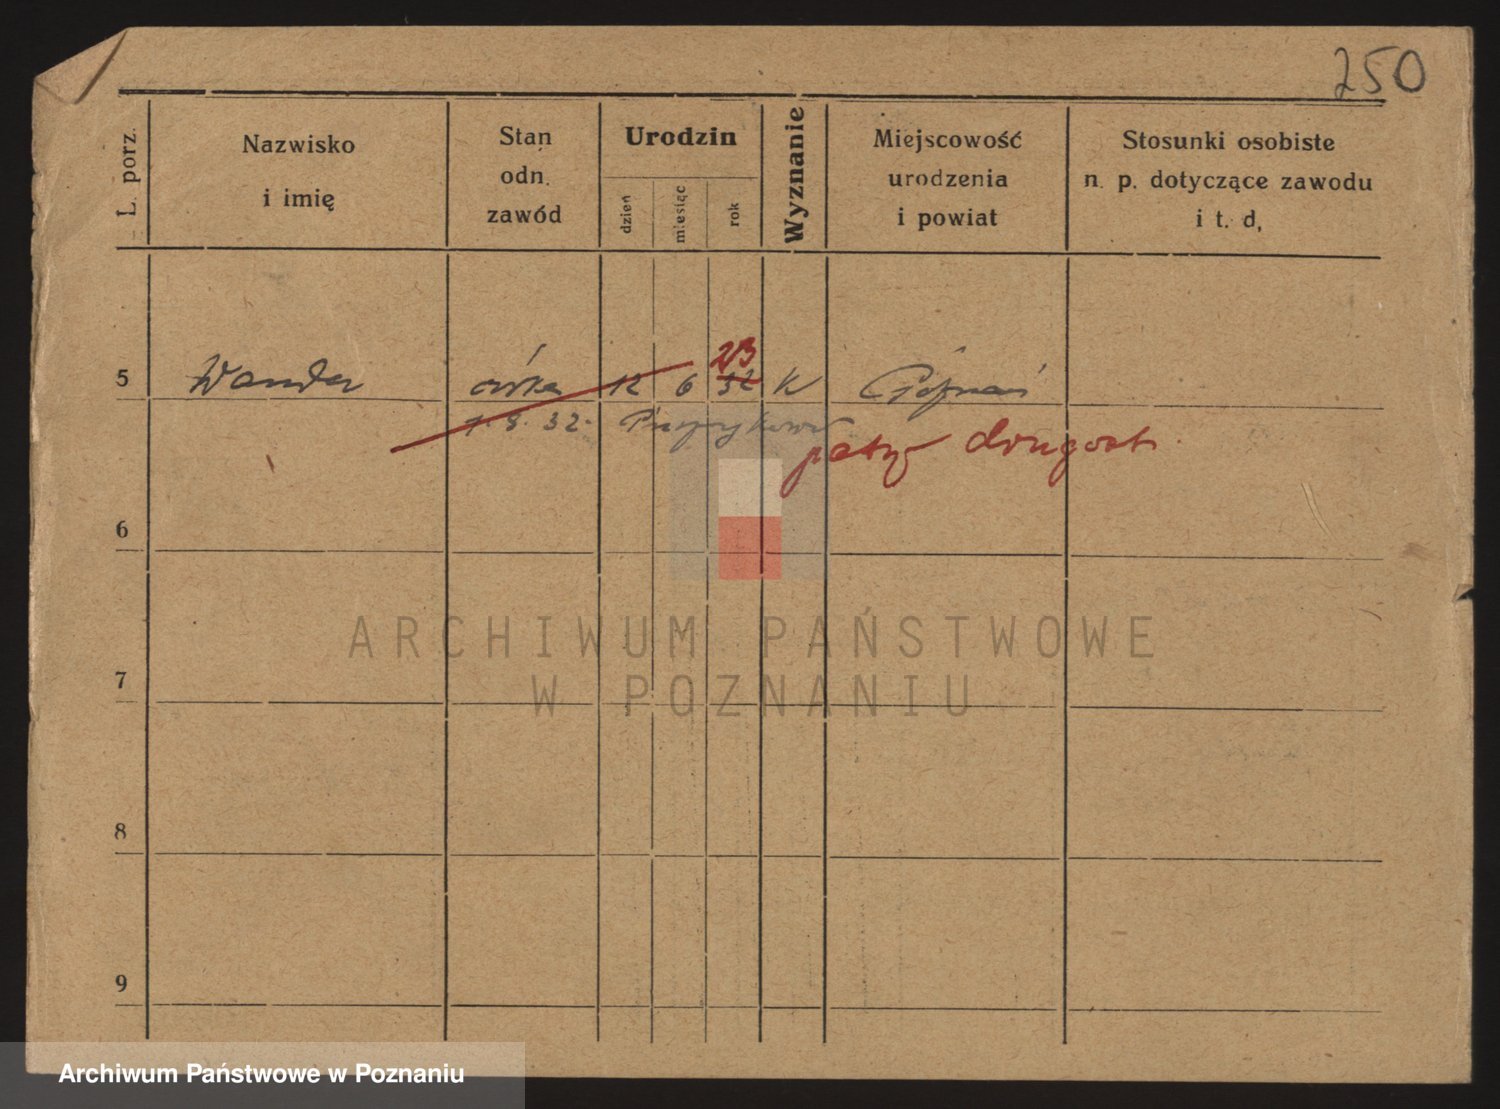 250
L. porz.
Nazwisko
i imię
Stan
odn.
zawód
Urodzin
dzień
miesiąc
rok
Wyznanie
Miejscowość
urodzenia
i powiat
Stosunki osobiste
n. p. dotyczące zawodu
i t. d,
23
5 Wanda córka 12 6 32 K Poznań
32.
patrz
6
7
8
9
ARCHIWUM PAŃSTWOWE
W POZNANIU
Archiwum Państwowe w Poznaniu